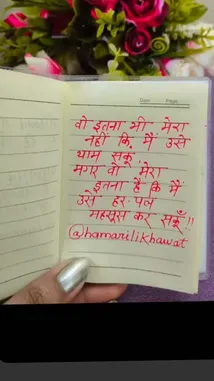 Date Page
वो इतना भी मेरा
नहीं कि मैं उसे
थाम सकूं
मगर वो मेरा
इतना है कि मैं
उसे हर पल
महसूस कर सकूँ !!
@hamarilikhawat